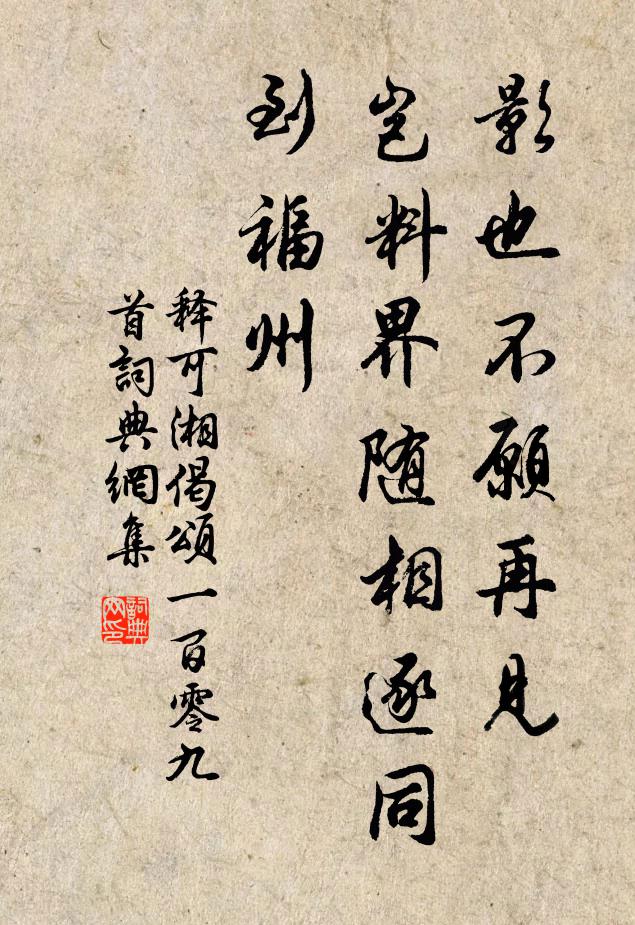 影也不願再見
岂料界随相逐同
到福州
释可湘偈頌一百零九
首詞典網集
詞典网印